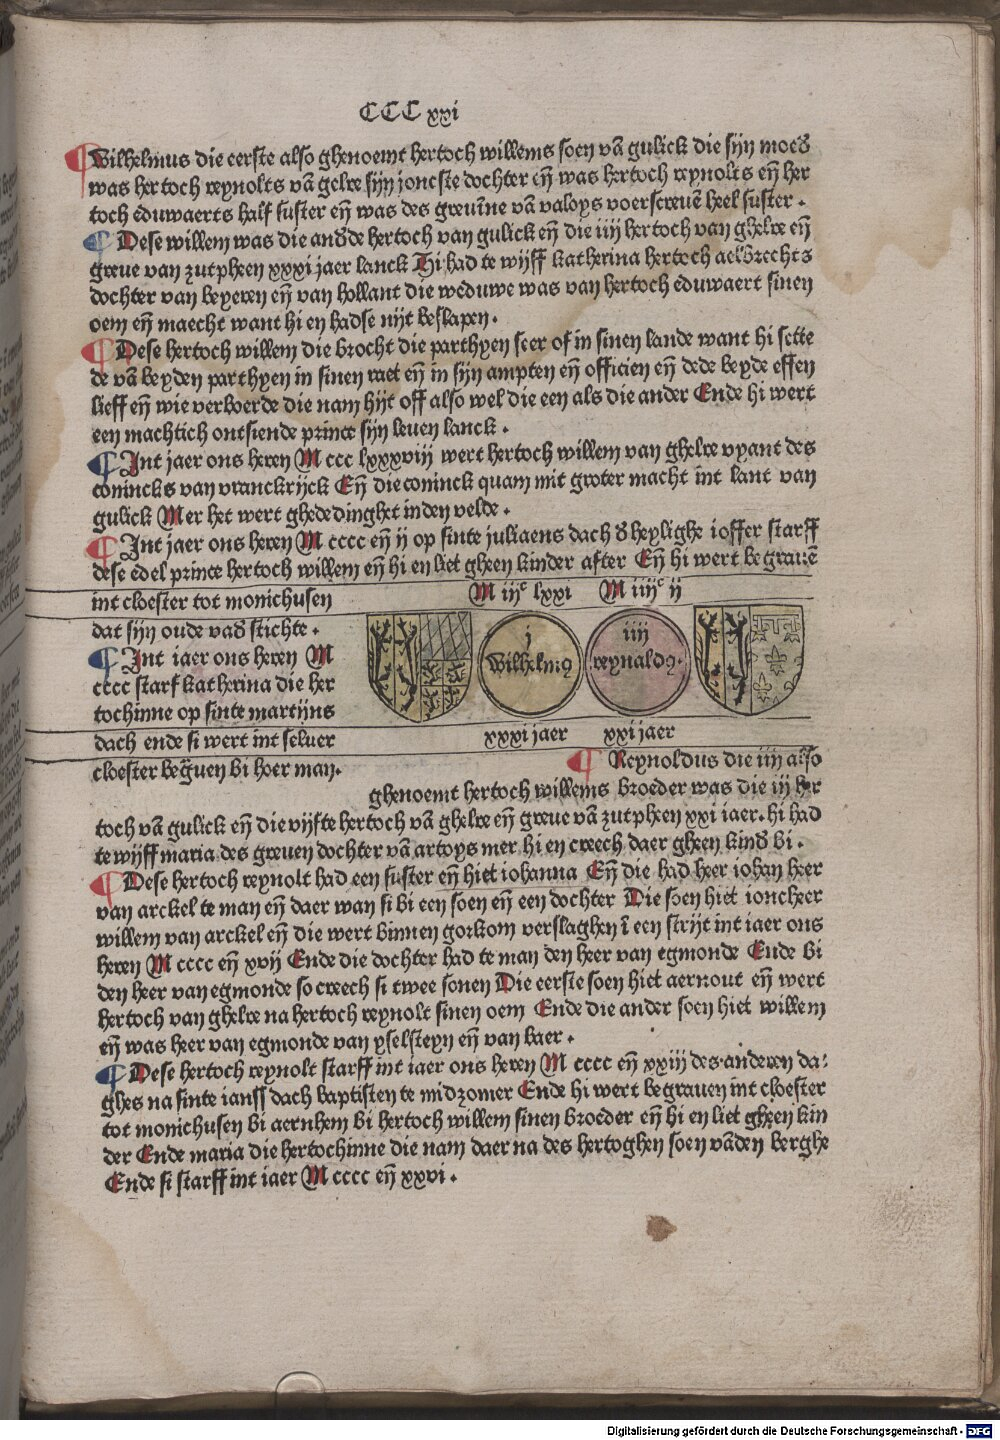 CCC xxi
¶ Wilhelmus die eerste also ghenoemt hertoch willems soen vā gulick die sijn moed̄
was hertoch reynolts vā gelre sijn joncste dochter eñ was hertoch reynolts eñ her
toch eduwaerts half suster eñ was des greuīne van valoys voerscreuē heel suster.
¶ Dese willem was die and̄de hertoch van gulick eñ die iiij hertoch van ghelre eñ
greue van zutpheen xxxi jaer lanck Hi had te wijff katherina hertoch aelbrechts
dochter van beyeren eñ van hollant die weduwe was van hertoch eduwaert sinen
oem eñ maecht want hi en hadse nijt beslapen.
¶ Dese hertoch willem die brocht die parthyen seer of in sinen lande want hi sette
de vā beyden parthyen in sinen raet eñ in sijn ampten eñ officien eñ dede beyde effen
lieff eñ wie verboerde die nam hijt off also wel die een als die ander Ende hi wert
een machtich ontsiende prince sijn leuen lanck.
¶ Int jaer ons heren M ccc lxxxviij wert hertoch willem van ghelre vyant des
conincks van vranckrijck Eñ die coninck quam mit groter macht int lant van
gulick Mer het wert ghededinghet inden velde.
¶ Int jaer ons heren M cccc eñ ij op sinte juliaens dach d̄ heylighe ioffer starff
dese edel prince hertoch willem eñ hi en liet gheen kinder after Eñ hi wert begrauē
int cloester tot monichusen
dat sijn oude vad̄ stichte.
¶ Int iaer ons heren M
cccc starf katherina die her
tochinne op sinte martijns
dach ende si wert int seluer
cloester beg̃uen bi hoer man.
M iijᶜ lxxi M iiijᶜ ij
j
Wilhelmꝯ
iiij
reynaldꝯ.
xxxi jaer xxi jaer
¶ Reynoldus die iiij also
ghenoemt hertoch willems broeder was die iij her
toch vā gulick eñ die vijfte hertoch vā ghelre eñ greue vā zutpheen xxi iaer. hi had
te wijff maria des greuen dochter vā artoys mer hi en creech daer gheen kind̄ bi.
¶ Dese hertoch reynolt had een suster eñ hiet iohanna Eñ die had heer iohan heer
van arckel te man eñ daer wan si bi een soen eñ een dochter Die soen hiet ioncheer
willem van arckel eñ die wert binnen gorkom verslaghen ī een strijt int iaer ons
heren M cccc eñ xvij Ende die dochter had te man den heer van egmonde Ende bi
den heer van egmonde so creech si twee sonen Die eerste soen hiet aernout eñ wert
hertoch van ghelre na hertoch reynolt sinen oem Ende die ander soen hiet willem
eñ was heer van egmonde van yselsteyn eñ van baer.
¶ Dese hertoch reynolt starff int iaer ons heren M cccc eñ xxiij des anderen da⸗
ghes na sinte ianss dach baptisten te midzomer Ende hi wert begrauen int cloester
tot monichusen bi aernhem bi hertoch willem sinen broeder eñ hi en liet gheen kin
der Ende maria die hertochinne die nam daer na des hertoghen soen vāden berghe
Ende si starff int iaer M cccc eñ xxvi.
Digitalisierung gefördert durch die Deutsche Forschungsgemeinschaft - DFG